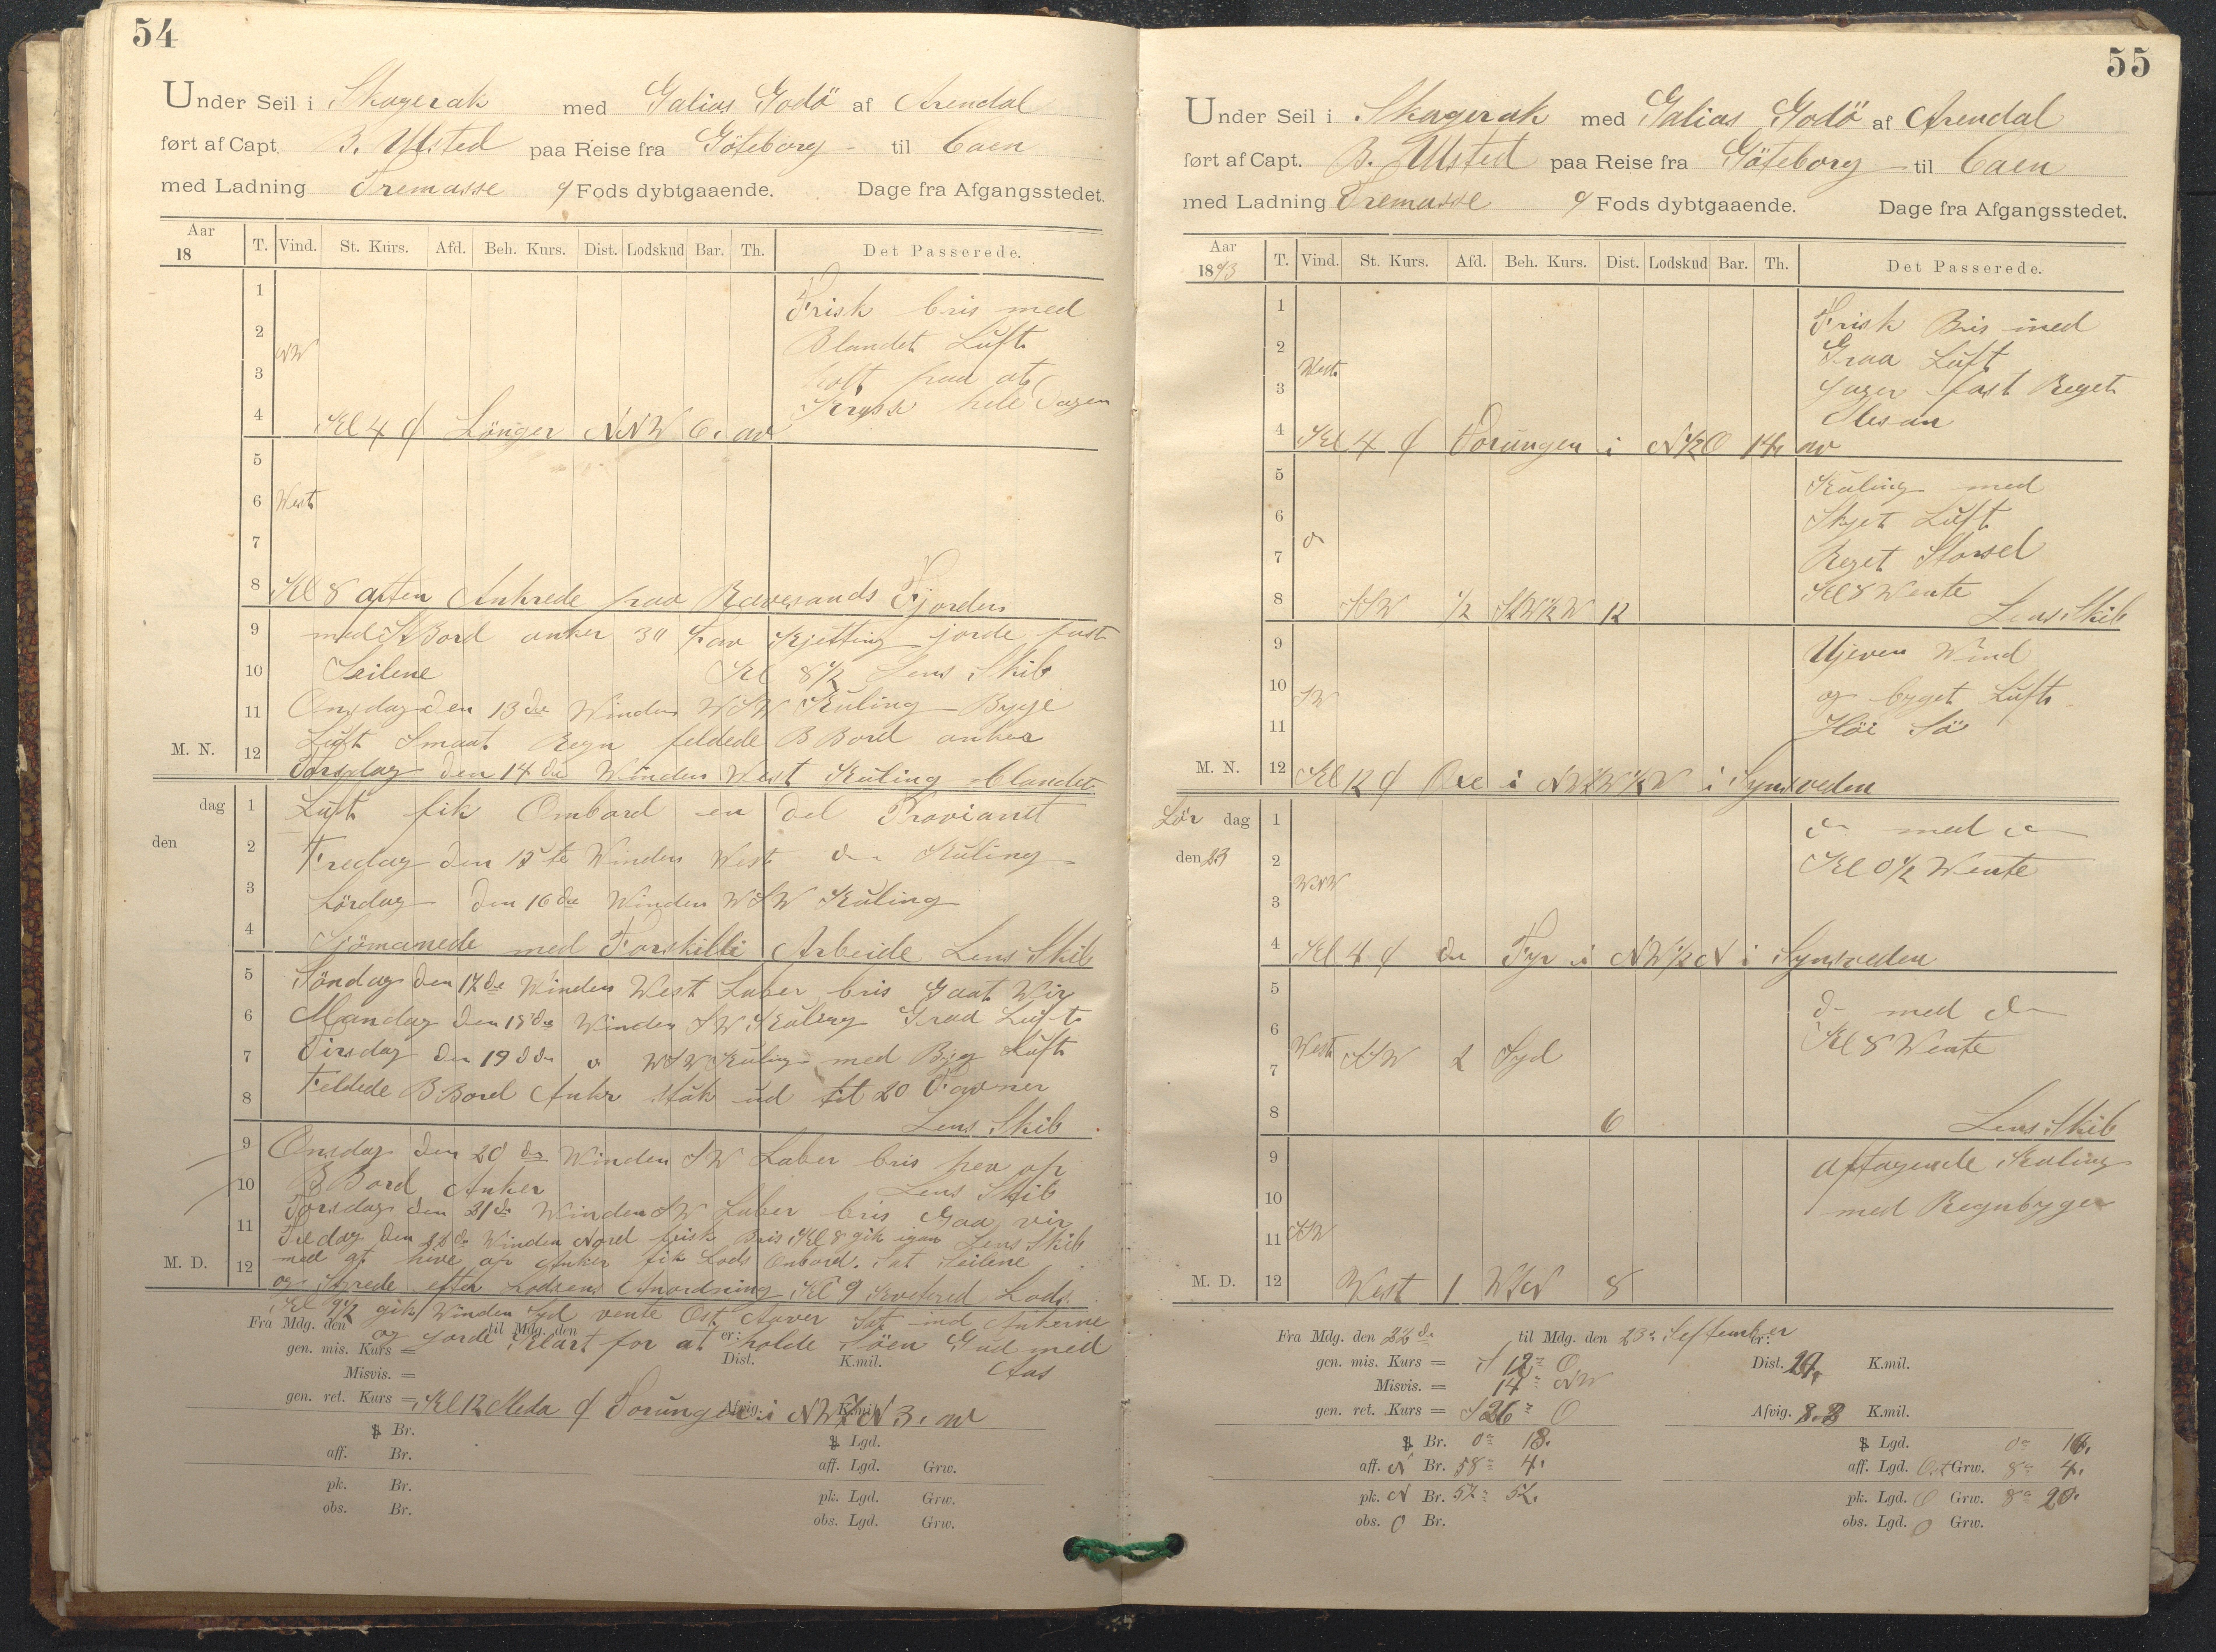 54
Under Seil i Skagerak med Galias Godö af Arendal
ført af Capt. B. Ulsted paa Reise fra Göteborg - til Caen
med Ladning Tremasse 9 Fods dybtgaaende. Dage fra Afgangsstedet.
Aar 18 T. Vind. St. Kurs. Afd. Beh. Kurs. Dist. Lodskud Bar. Th. Det Passerede.
1 Frisk bris med
2 Blandet Luft
NW
3 holt paa at
4 Krysse hele Dagen
Kl 4 Lönger NNW 6, av
5
6 West
7
8 Kl 8 aften Ankrede paa Revesands Fjorden
9 med StBord anker 30 Fav Kjetting jorde fast
10 Seilene Kl 8 1/2 Lens Skib
11 Onsdag den 13de Winden WSW Kuling Bygje
Luft Smaat Regn feldede BBord anker
M. N. 12 Torsdag den 14de Winden West Kuling blandet
dag 1 Luft fik Ombord en del Proviant
den 2 Fredag den 15te Winden West do Kuling
3 Lördag den 16de Winden WSW Kuling
4 Sjömanede med Forskilli Arbeide Lens Skib
5 Söndag den 17de Winden West Laber bris Gaat Wir
6 Mandag den 18de Winden SW Kuling Graa Luft
7 Tirsdag den 19de do WSW Kuling med Byg Luft
8 Feldede BBord Anker stak ud til 20 Favner
Lens Skib
9 Onsdag den 20de Winden SW Laber bris hev op
10 BBord Anker Lens Skib
Torsdag den 21de Winden SW Laber bris Graa vir
11 Fredag den 22de Winden Nord frisk Bris Kl 8 gik igan Lens Skib
med at hive op Anker fik Lods Ombord. Sat Seilene
M. D. 12 og Styrede efter Lodsens Anordning Kl 9 Kvitered Lods.
Kl 9 1/2 gik Winden Syd vente Ost Aover Sat ind Ankerne
Fra Mdg. den til Mdg. den er:
og jorde Klart for at holde Söen Gud med
gen. mis. Kurs = Dist. K.mil.
Aas
Misvis. =
gen. ret. Kurs = Afvig. K.mil.
Kl 12 Meda Torungen i NWzN 3, av
Br. Lgd.
aff. Br. aff. Lgd. Grw.
pk. Br. pk. Lgd. Grw.
obs. Br. obs. Lgd. Grw.
55
Under Seil i Skagerak med Galias Godö af Arendal
ført af Capt. B. Ulsted paa Reise fra Göteborg - til Caen
med Ladning Tremasse 9 Fods dybtgaaende. Dage fra Afgangsstedet.
Aar 1893 T. Vind. St. Kurs. Afd. Beh. Kurs. Dist. Lodskud Bar. Th. Det Passerede.
1 Frisk Bris med
2 Graa Luft
West
3 Jager fast Reget
4 Mesan
Kl 4 Torungen i N1/2O 14, av
5 Kuling med
6 Skyet Luft
do
7 Reget Storsel
Kl 8 Wente
8 SSW 1/2 SzW1/2W 12 Lens Skib
9 Ujeven Wind
10 SW og byget Luft
11 Höi Sö
M. N. 12 Kl 12 Oxe i NWzW1/2W i Synsveden
Lör dag 1 do med do
den 23 2 Kl 0 1/2 Wente
WNW
3
4 Kl 4 do Fyr i NW1/2N i Synsveden
5 do med do
6 Kl 8 Wente
West SSW 2 Syd
7
8 6 Lens Skib
9 Aftagende Kuling
10 med Regnbyger
11 SW
M. D. 12 West 1 WzN 8
Fra Mdg. den 22de til Mdg. den 23de September er:
gen. mis. Kurs = S 12° O Dist. 29, K.mil.
Misvis. = 14° NW
gen. ret. Kurs = S 26° O Afvig. 8.8 K.mil.
Br. 0° 18, Lgd. 0° 16,
aff. N Br. 58° 4, aff. Lgd. Ost Grw. 8° 4,
pk. N Br. 57° 52, pk. Lgd. O Grw. 8° 20,
obs. 0 Br. obs. Lgd. 0 Grw.